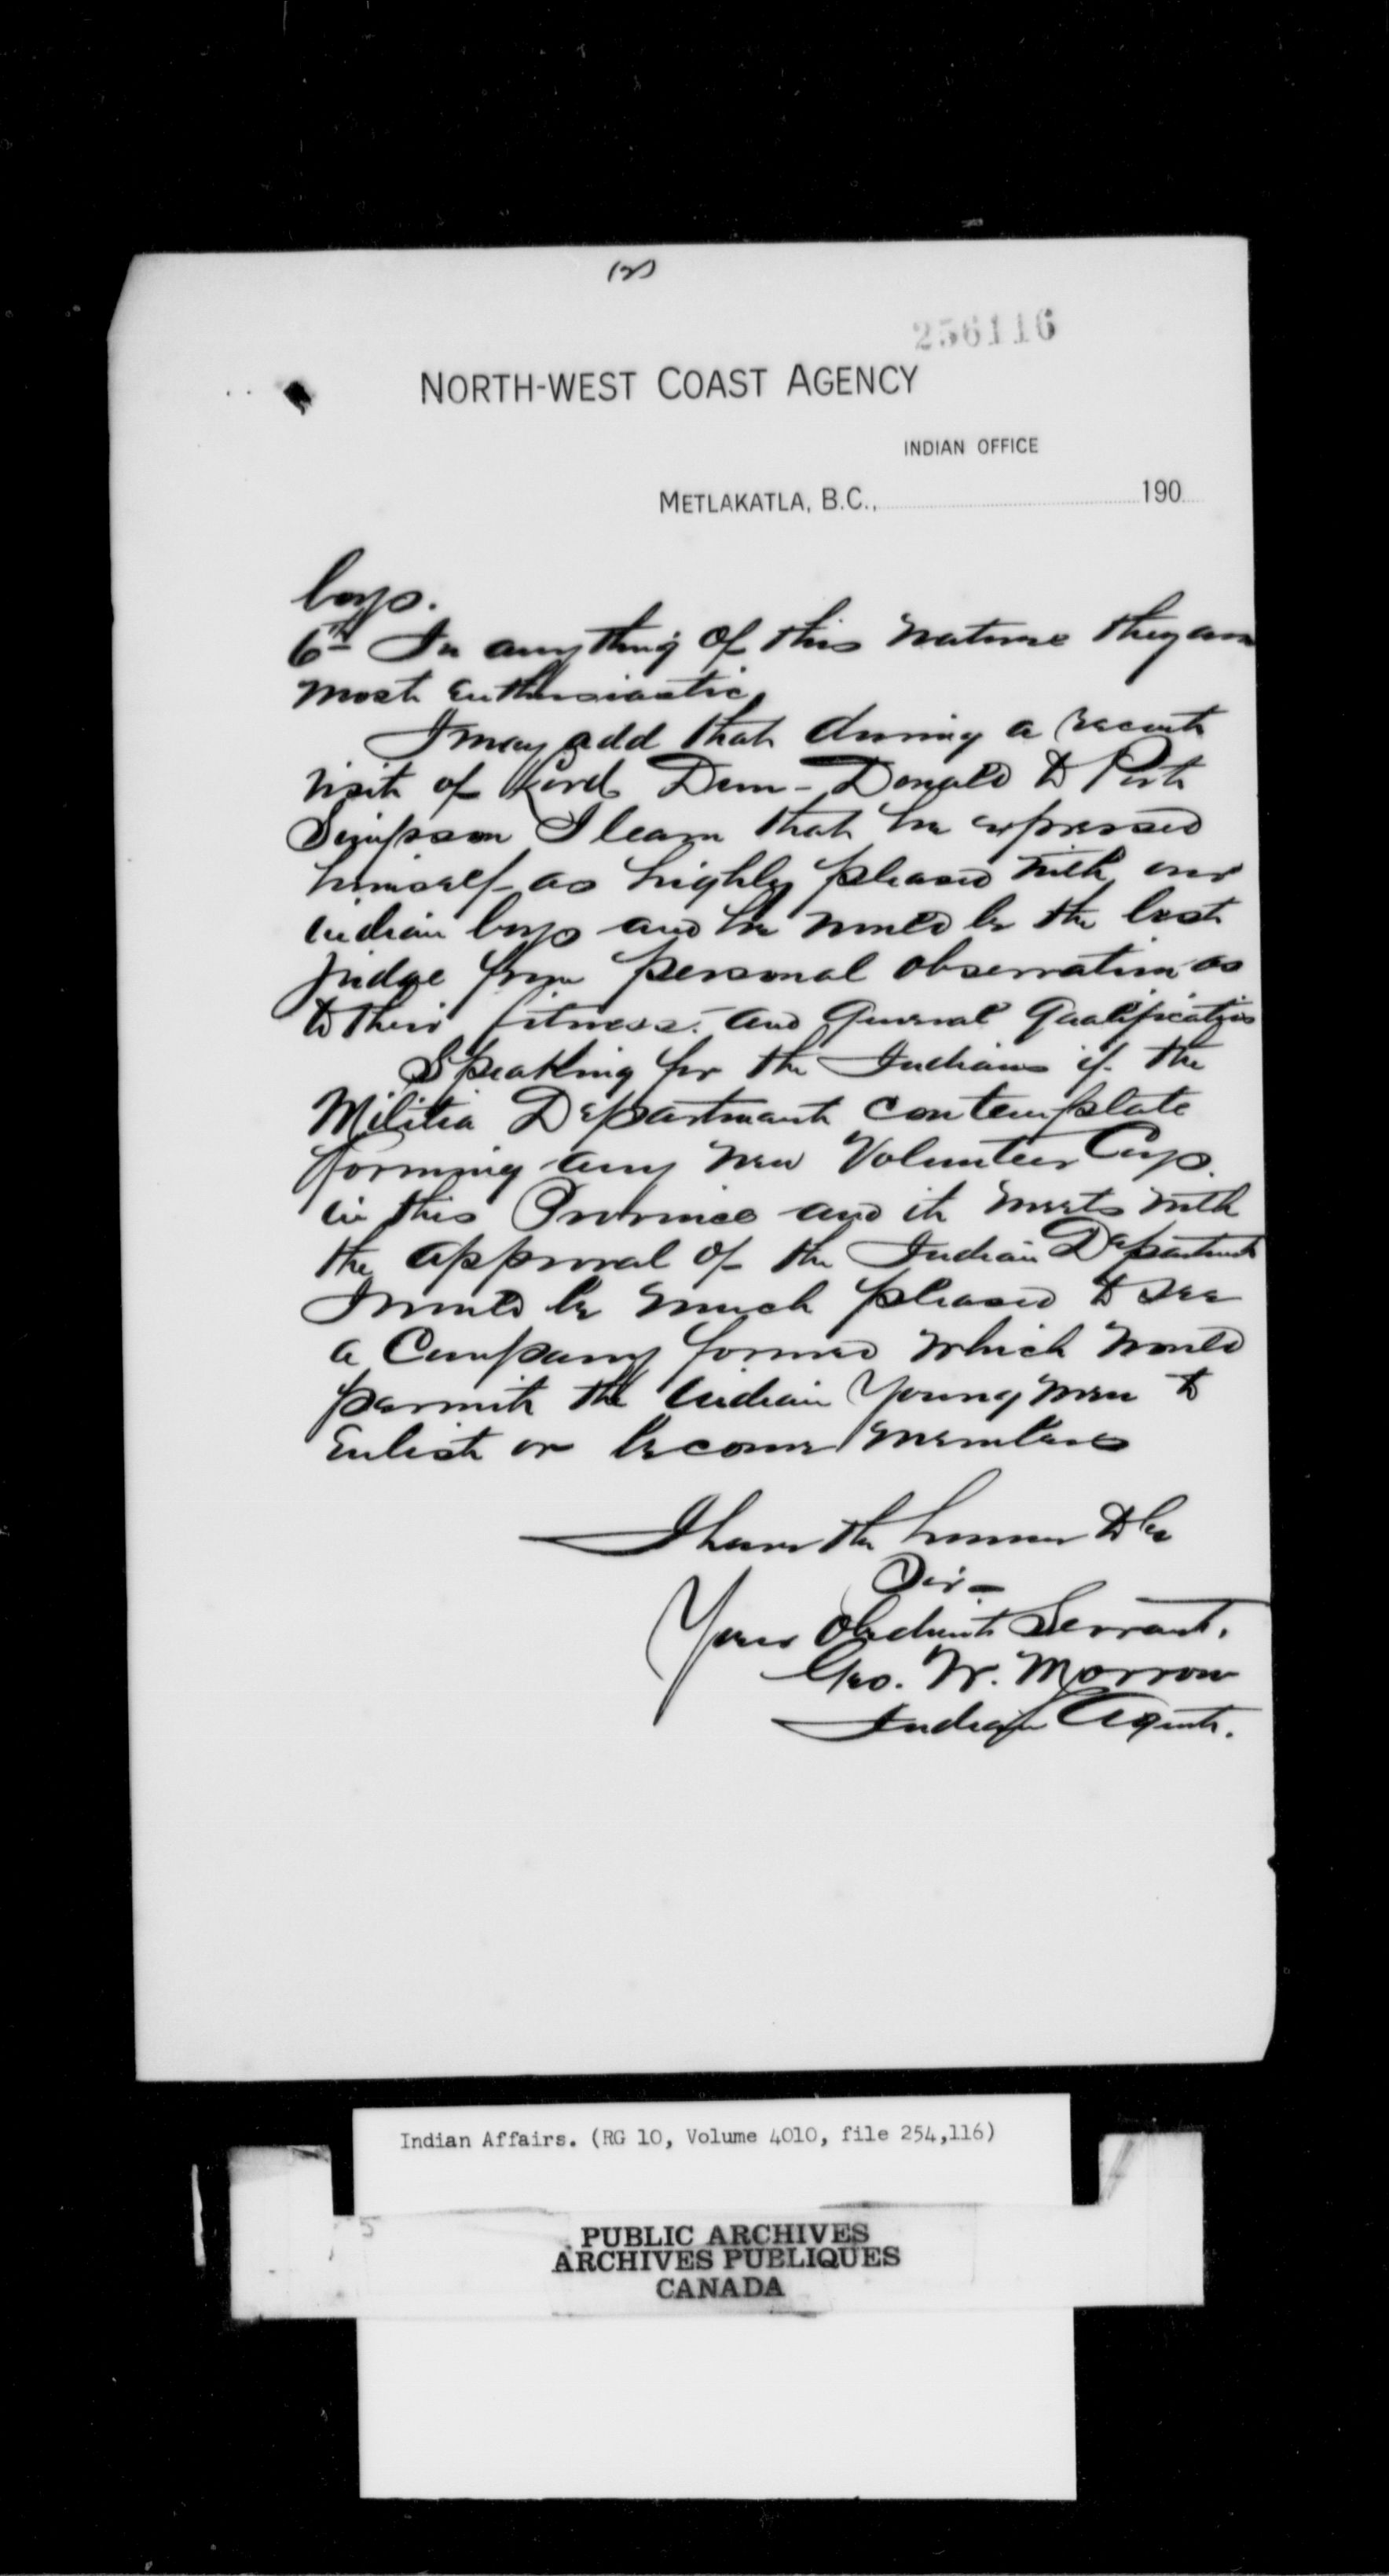 (2)
256116
NORTH-WEST COAST AGENCY
INDIAN OFFICE
METLAKATLA, B.C., 190
boys.
6th In anything of this nature they are
most enthusiastic,
I may add that during a recent
visit of Lord Dun-Donald to Port
Simpson I learn that he expressed
himself as highly pleased with our
Indian boys and he would be the best
judge from personal observation as
to their fitness. and General Qualifications
Speaking for the Indians if the
Militia Department contemplate
forming any new Volunteer Corps.
in this Province and it meets with
the approval of the Indian Department
I would be much pleased to see
a Company formed which would
permit the Indian Young men to
Enlist or become members
I have the honour to be
Sir-
Your Obedient Servant.
Geo. W. Morrow
Indian Agent.
Indian Affairs. (RG 10, Volume 4010, file 254,116)
5
PUBLIC ARCHIVES
ARCHIVES PUBLIQUES
CANADA